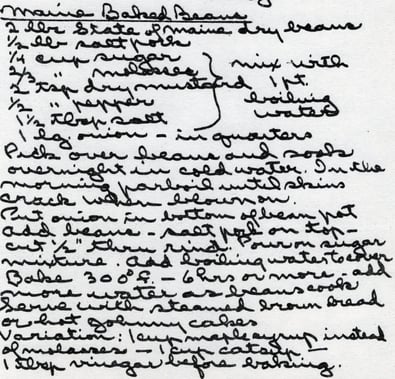 Maine Baked Beans
2 lbs State of Maine dry beans
1/2 lb salt pork
1/4 cup sugar
2/3 " molasses
2 tsp dry mustard
1/2 " pepper
1 1/2 tbsp salt
mix with
1 pt.
boiling
water
1 lg onion - in quarters
Pick over beans and soak
overnight in cold water. In the
morning parboil until skins
crack when blown on.
Put onion in bottom of bean pot
add beans - salt pork on top -
cut 1/2" thru rind. Pour on sugar
mixture. Add boiling water to cover
Bake 300°F. - 6 hrs or more - add
more water as beans cook
Serve with steamed brown bread
or hot Johnny cakes
Variation: 1 cup maple syrup instead
of molasses - 1 cup catsup -
1 tbsp vinegar before baking.